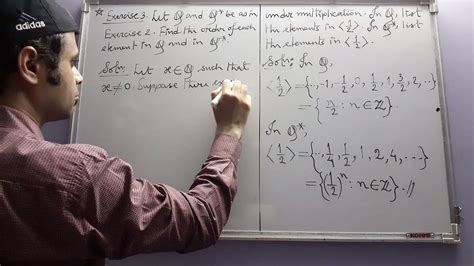 * Exercise 3. Let ℚ and ℚ* be as in
Exercise 2. Find the order of each
element in ℚ and in ℚ*.
Soln: Let x ∈ ℚ such that
x ≠ 0. Suppose there ex
under multiplication. In ℚ, list
the elements in ⟨1/2⟩. In ℚ*, list
the elements in ⟨1/2⟩.
Soln: In ℚ,
⟨1/2⟩ = {.., -1, -1/2, 0, 1/2, 1, 3/2, 2, ..}
= {n/2 : n ∈ ℤ}
In ℚ*,
⟨1/2⟩ = {.., 1/4, 1/2, 1, 2, 4, ...}
= {(1/2)ⁿ : n ∈ ℤ}. //
adidas
KORES